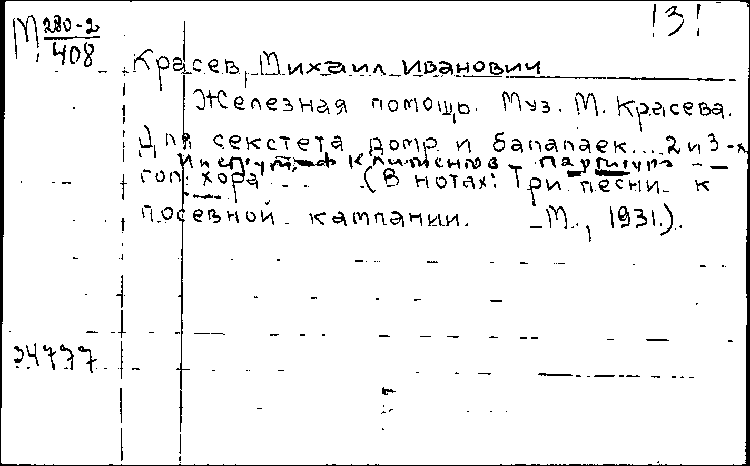 М 280-2
408
131
Красев, Михаил Иванович
Железная помощь. Муз. М. Красева.
Для секстета домр и балалаек....2 и 3-х
Инструт. Ф. Климентов партитура
гол. хора ... (В нотах: Три песни к
посевной кампании. _М., 1931.).
34777